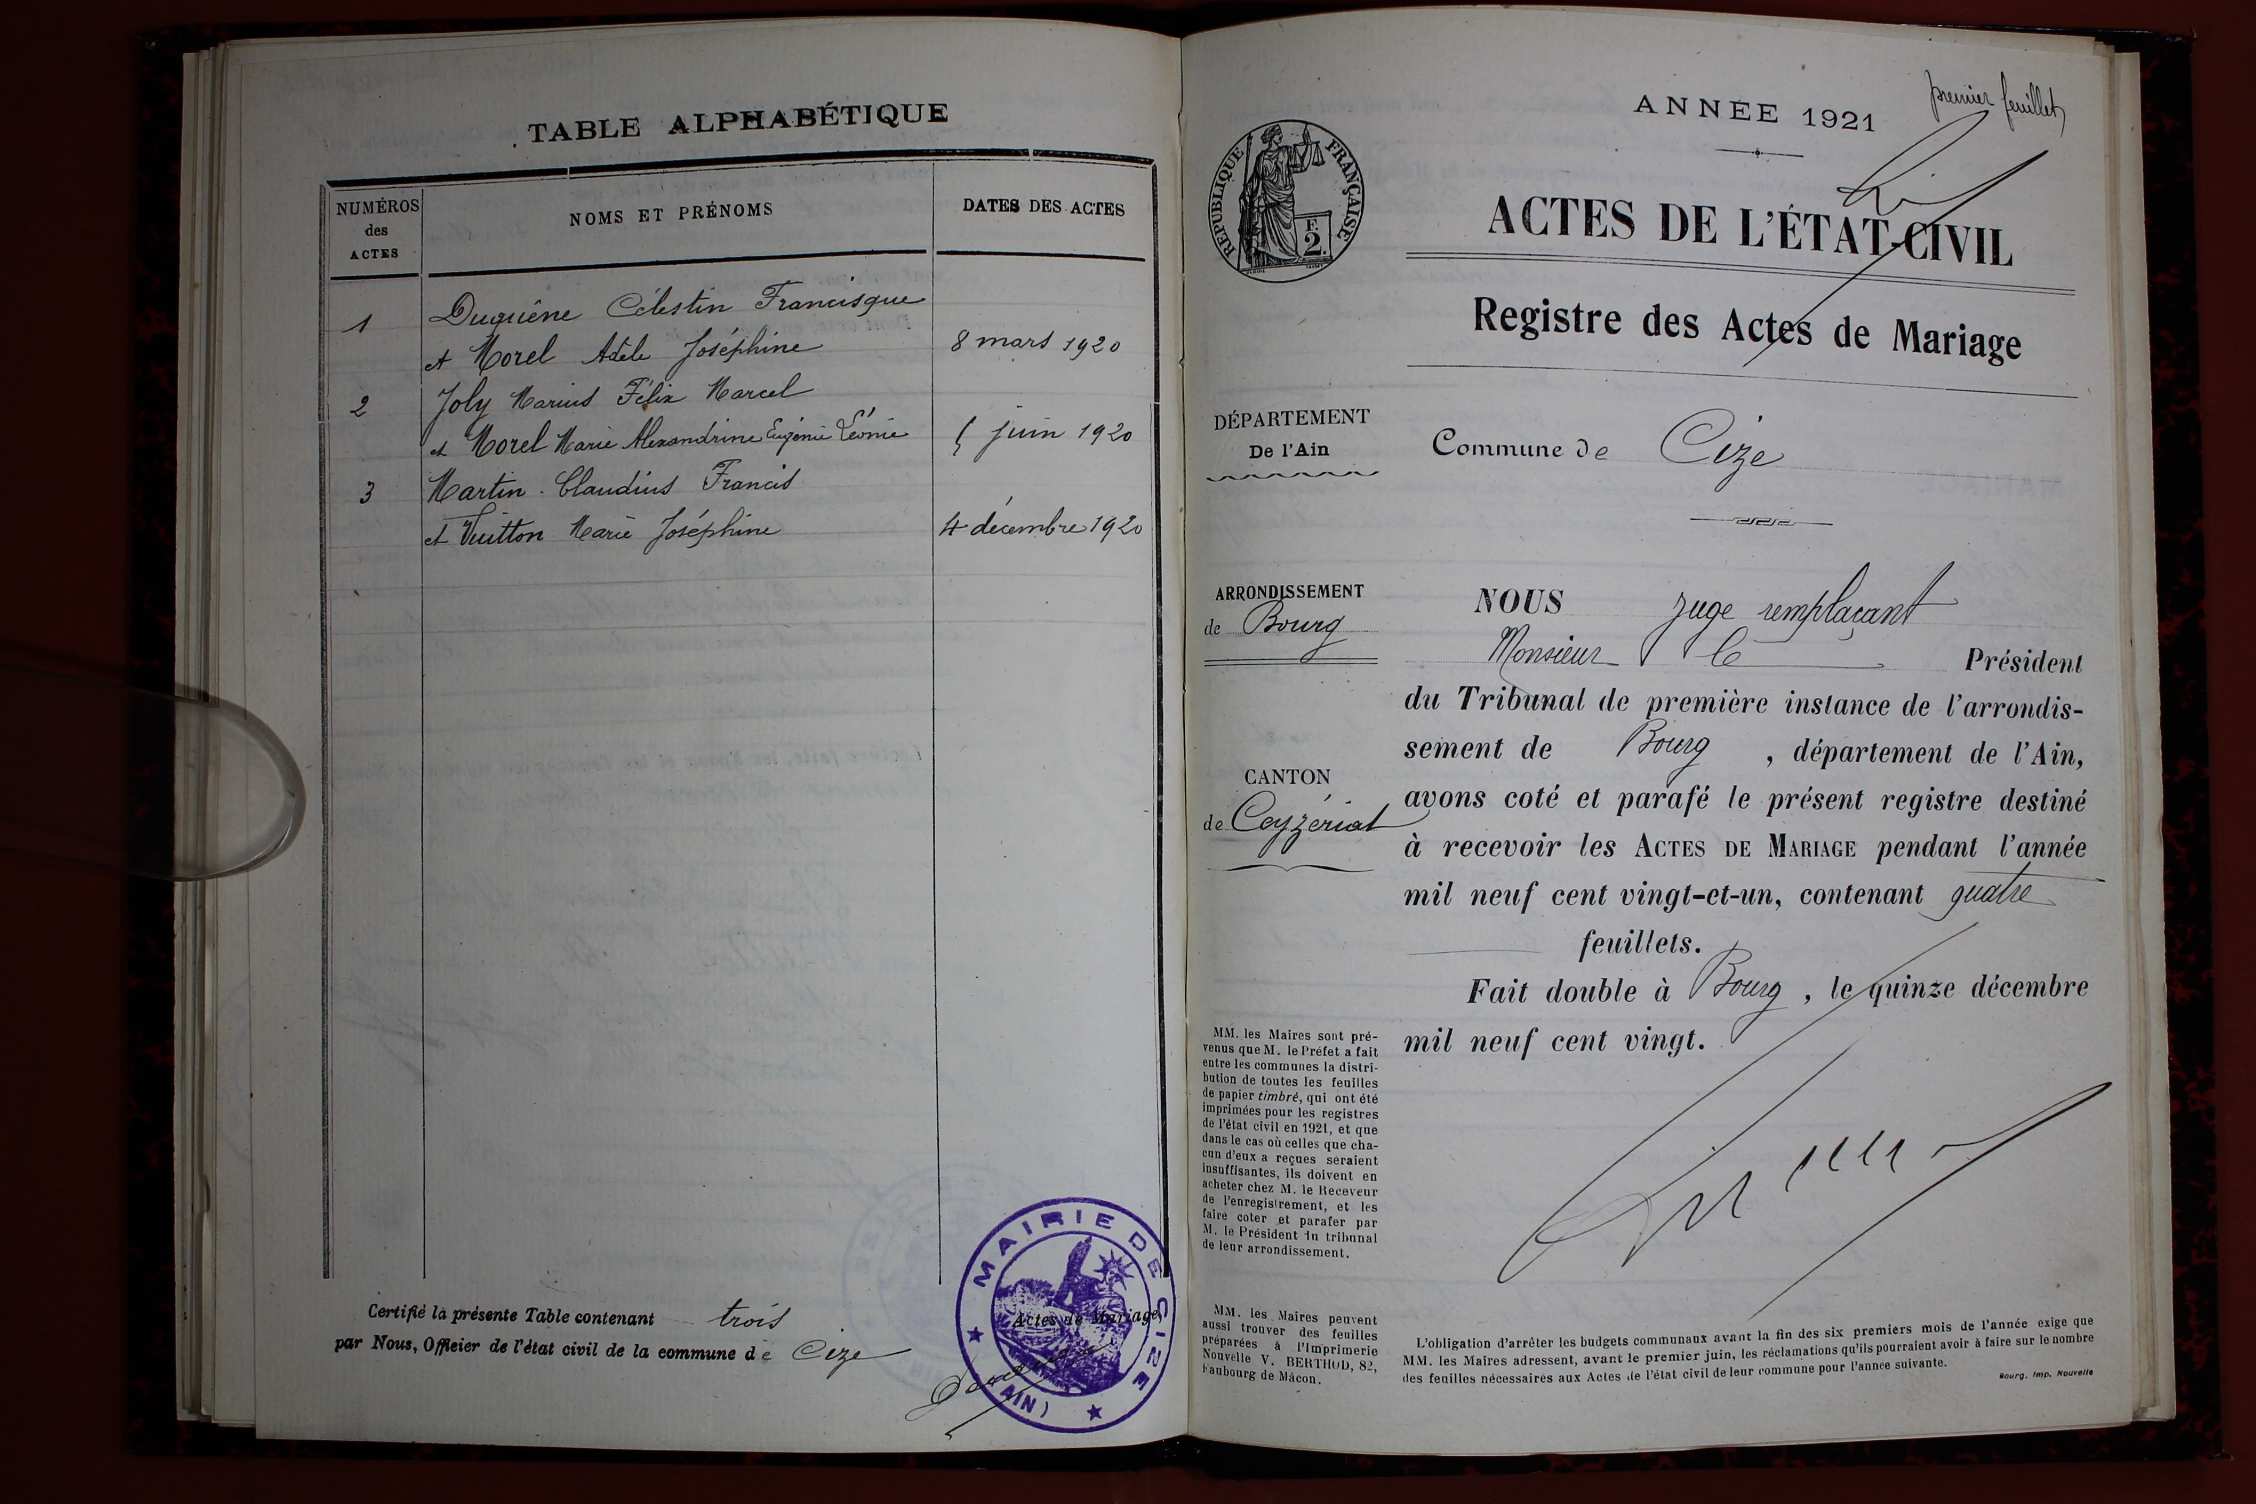 TABLE ALPHABÉTIQUE
NUMÉROS
des
ACTES
NOMS ET PRÉNOMS
DATES DES ACTES
1 Duquiène Célestin Francisque
et Morel Adèle Joséphine 8 mars 1920
2 Joly Marius Félix Marcel
et Morel Marie Alexandrine Eugénie Léonie juin 1920
3 Martin Claudius Francis
et Vuitton Marie Joséphine 4 décembre 1920
Certifié la présente Table contenant trois Actes de Mariage,
par Nous, Officier de l'état civil de la commune de Cize
MAIRIE DE CIZE
(AIN)
ANNÉE 1921
premier feuillet
RÉPUBLIQUE FRANÇAISE
F.
2
ACTES DE L'ÉTAT-CIVIL
Registre des Actes de Mariage
DÉPARTEMENT
De l'Ain
Commune de Cize
ARRONDISSEMENT
de Bourg
CANTON
de Ceyzériat
NOUS juge remplaçant
Monsieur le Président
du Tribunal de première instance de l'arrondis-
sement de Bourg, département de l'Ain,
avons coté et parafé le présent registre destiné
à recevoir les ACTES DE MARIAGE pendant l'année
mil neuf cent vingt-et-un, contenant quatre
feuillets.
Fait double à Bourg, le quinze décembre
mil neuf cent vingt.
MM. les Maires sont pré-
venus que M. le Préfet a fait
entre les communes la distri-
bution de toutes les feuilles
de papier timbré, qui ont été
imprimées pour les registres
de l'état civil en 1921, et que
dans le cas où celles que cha-
cun d'eux a reçues seraient
insuffisantes, ils doivent en
acheter chez M. le Receveur
de l'enregistrement, et les
faire coter et parafer par
M. le Président du tribunal
de leur arrondissement.
MM. les Maires peuvent
aussi trouver des feuilles
préparées à l'Imprimerie
Nouvelle V. BERTHOD, 82,
Faubourg de Mâcon.
L'obligation d'arrêter les budgets communaux avant la fin des six premiers mois de l'année exige que
MM. les Maires adressent, avant le premier juin, les réclamations qu'ils pourraient avoir à faire sur le nombre
des feuilles nécessaires aux Actes de l'état civil de leur commune pour l'année suivante.
Bourg. Imp. Nouvelle